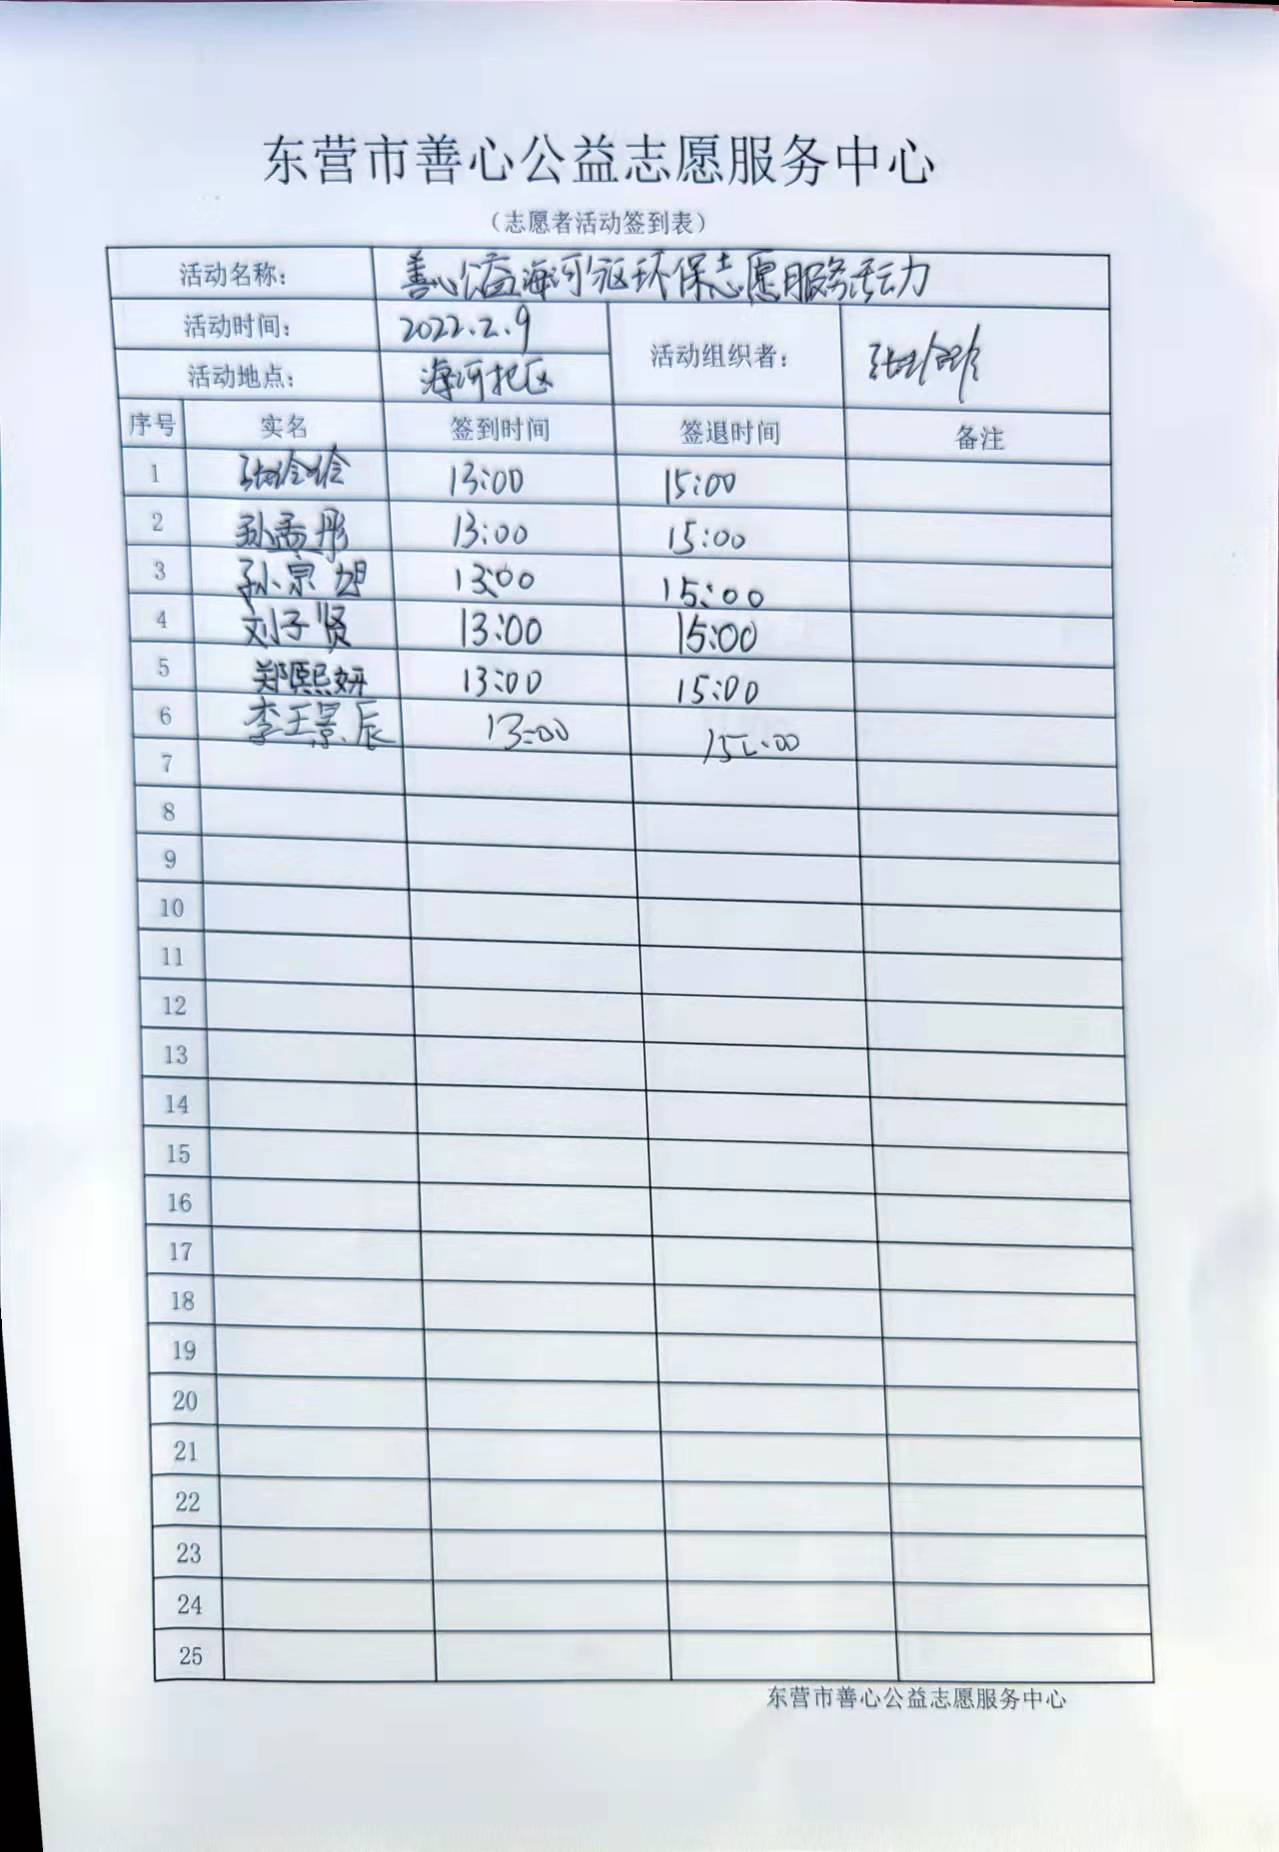 东营市善心公益志愿服务中心
（志愿者活动签到表）
活动名称： 善心公益海河小区环保志愿服务活动
活动时间： 2022.2.9 活动组织者：
活动地点： 海河社区
序号 实名 签到时间 签退时间 备注
1 13:00 15:00
2 孙孟彤 13:00 15:00
3 孙宗旭 13:00 15:00
4 刘子贤 13:00 15:00
5 郑熙妍 13:00 15:00
6 李王景辰 13:00 15:00
7
8
9
10
11
12
13
14
15
16
17
18
19
20
21
22
23
24
25
东营市善心公益志愿服务中心